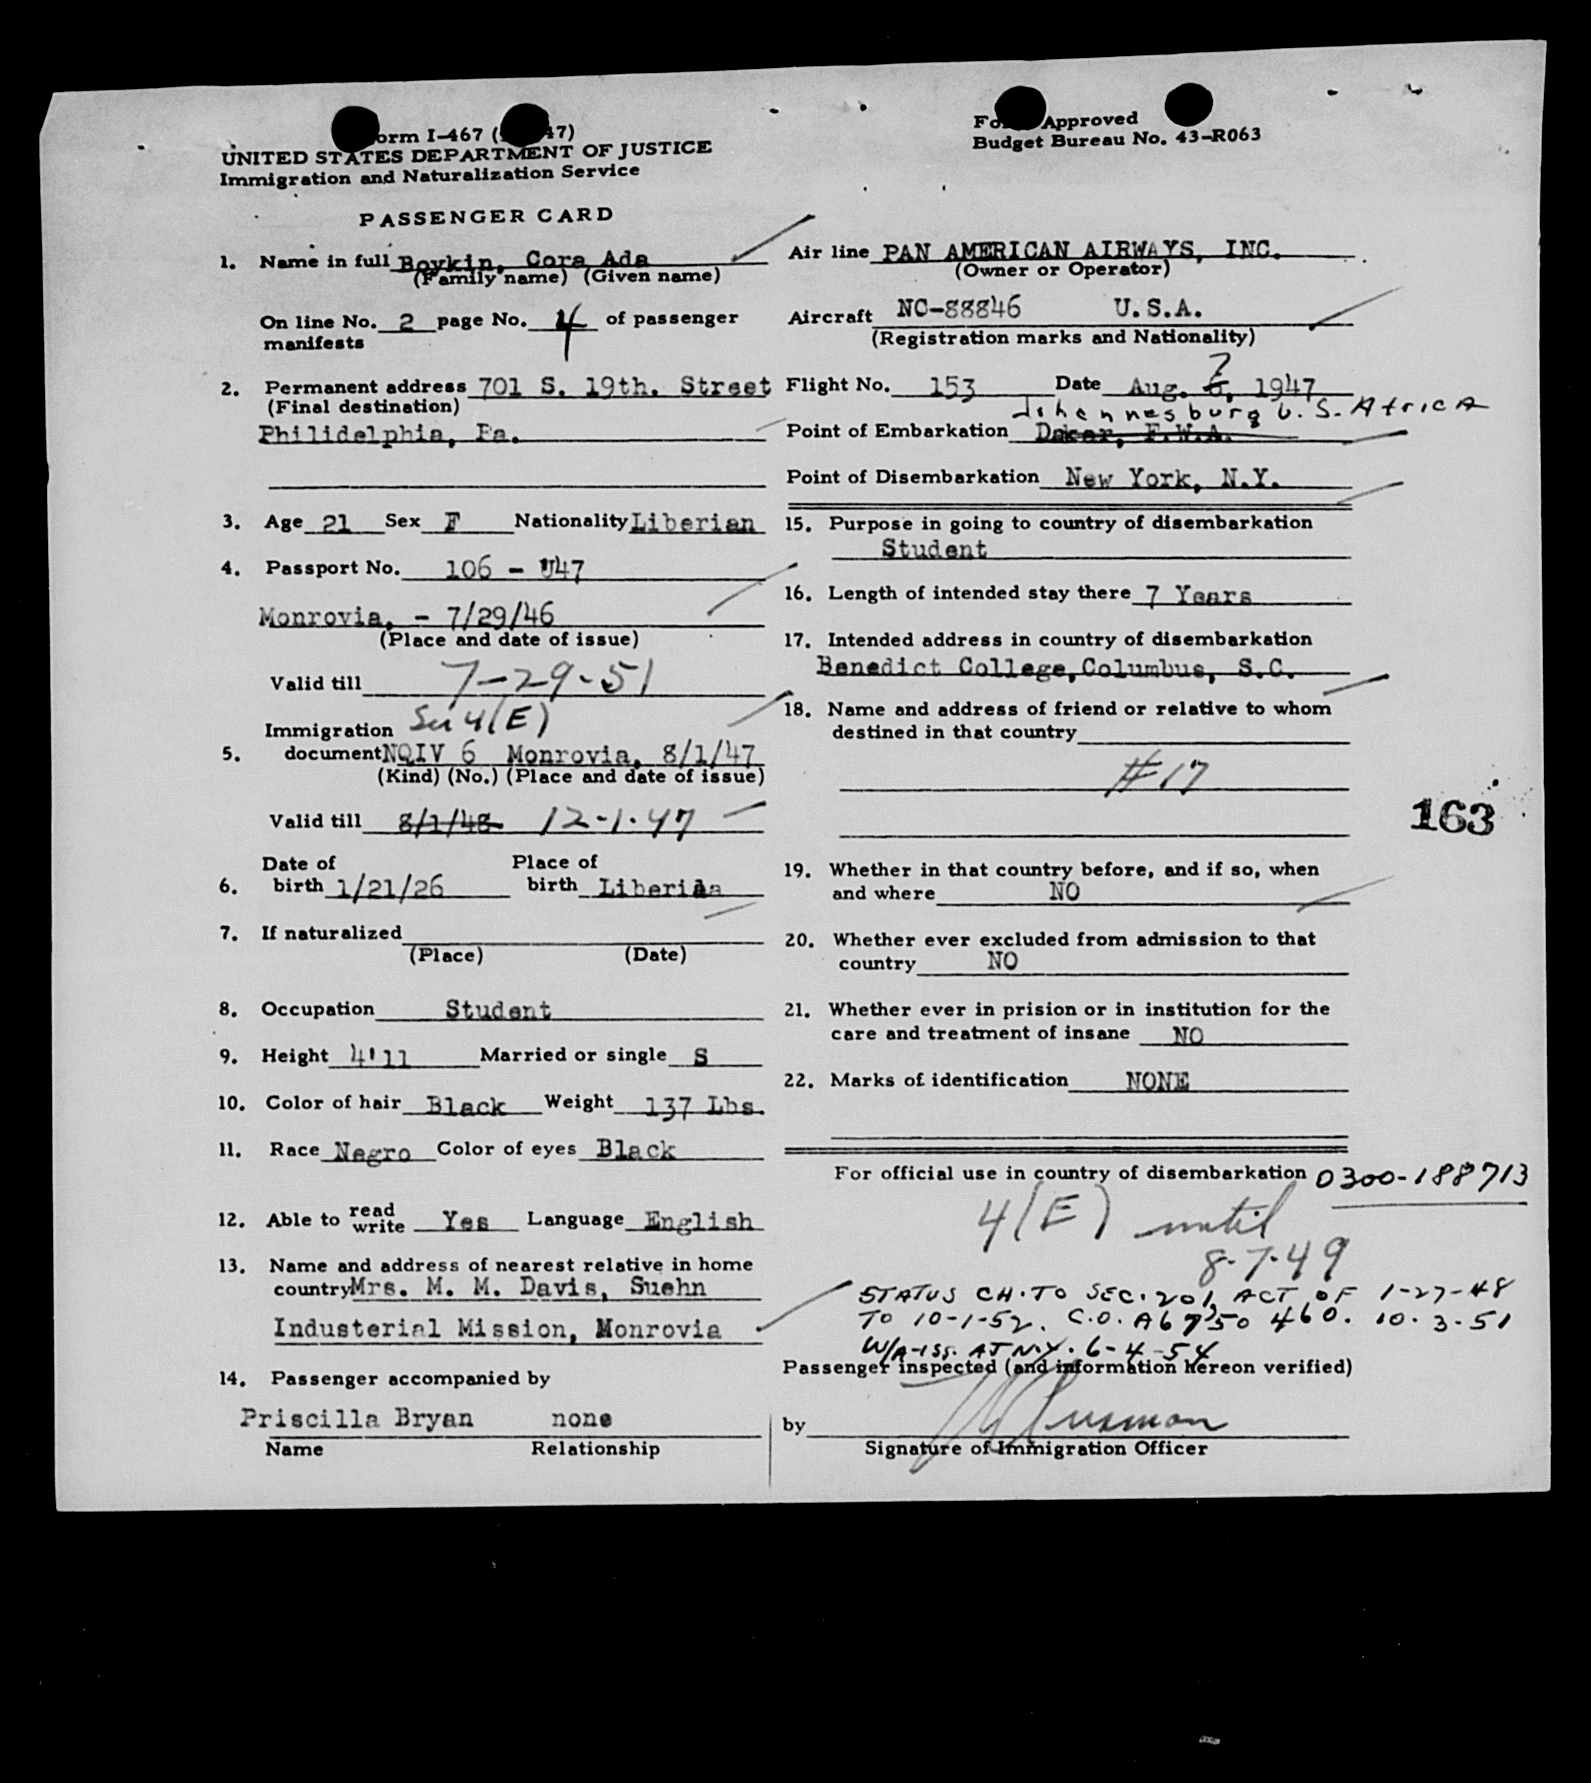 Form I-467 ( 47)
UNITED STATES DEPARTMENT OF JUSTICE
Immigration and Naturalization Service
Form Approved
Budget Bureau No. 43-R063
PASSENGER CARD
1. Name in full Boykin, Cora Ada
(Family name) (Given name)
On line No. 2 page No. 4 of passenger
manifests
2. Permanent address 701 S. 19th. Street
(Final destination)
Philidelphia, Pa.
3. Age 21 Sex F Nationality Liberian
4. Passport No. 106 - U47
Monrovia, - 7/29/46
(Place and date of issue)
Valid till 7-29-51
4(E)
Immigration
5. document NQIV 6 Monrovia, 8/1/47
(Kind) (No.) (Place and date of issue)
Valid till 8/1/48 12-1-47
Date of Place of
6. birth 1/21/26 birth Liberiaa
7. If naturalized
(Place) (Date)
8. Occupation Student
9. Height 4'11 Married or single S
10. Color of hair Black Weight 137 Lbs.
11. Race Negro Color of eyes Black
12. Able to read write Yes Language English
13. Name and address of nearest relative in home
country Mrs. M. M. Davis, Suehn
Industerial Mission, Monrovia
14. Passenger accompanied by
Priscilla Bryan none
Name Relationship
Air line PAN AMERICAN AIRWAYS, INC.
(Owner or Operator)
Aircraft NC-88846 U.S.A.
(Registration marks and Nationality)
7
Flight No. 153 Date Aug. 6, 1947
Johannesburg U. S. Africa
Point of Embarkation Dakar, F.W.A.
Point of Disembarkation New York, N.Y.
15. Purpose in going to country of disembarkation
Student
16. Length of intended stay there 7 Years
17. Intended address in country of disembarkation
Benedict College, Columbus, S.C.
18. Name and address of friend or relative to whom
destined in that country
#17
163
19. Whether in that country before, and if so, when
and where NO
20. Whether ever excluded from admission to that
country NO
21. Whether ever in prision or in institution for the
care and treatment of insane NO
22. Marks of identification NONE
For official use in country of disembarkation 0300-188713
4(E) until
8-7-49
STATUS CH. TO SEC. 201, ACT OF 1-27-48
TO 10-1-52. C.O. A6750 460. 10-3-51
W/A-ISS. AT N.Y. 6-4-54
Passenger inspected (and information hereon verified)
by
Signature of Immigration Officer